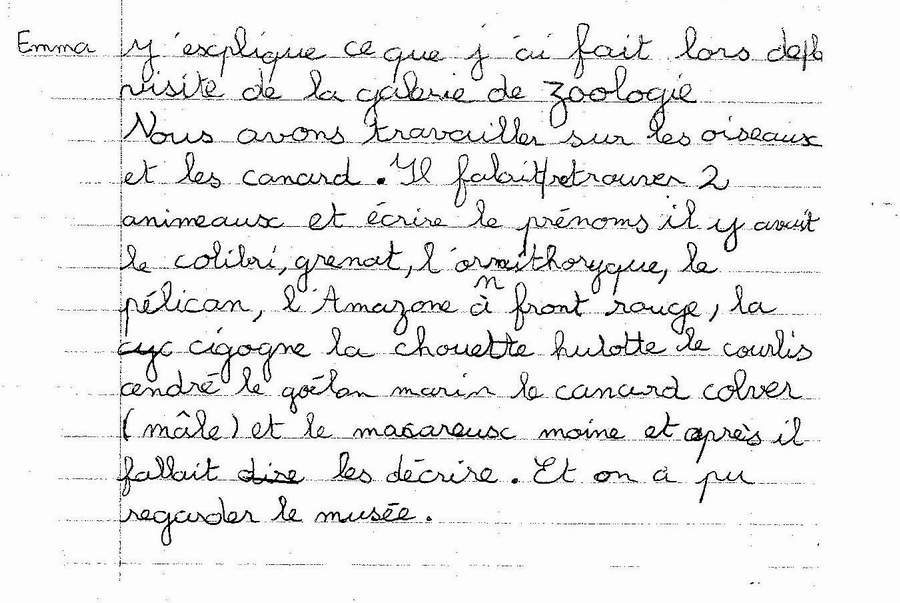 Emma J'explique ce que j'ai fait lors de la
visite de la galerie de zoologie
Nous avons travailler sur les oiseaux
et les canard. Il falait retrouver 2
animeaux et écrire le prénoms il y avait
le colibri, grenat, l'ornithoryque, le
pélican, l'Amazone à front rouge, la
cigogne la chouette hulotte le courlis
cendré le goélan marin le canard colver
(mâle) et le macareux moine et après il
fallait les décrire. Et on a pu
regarder le musée.